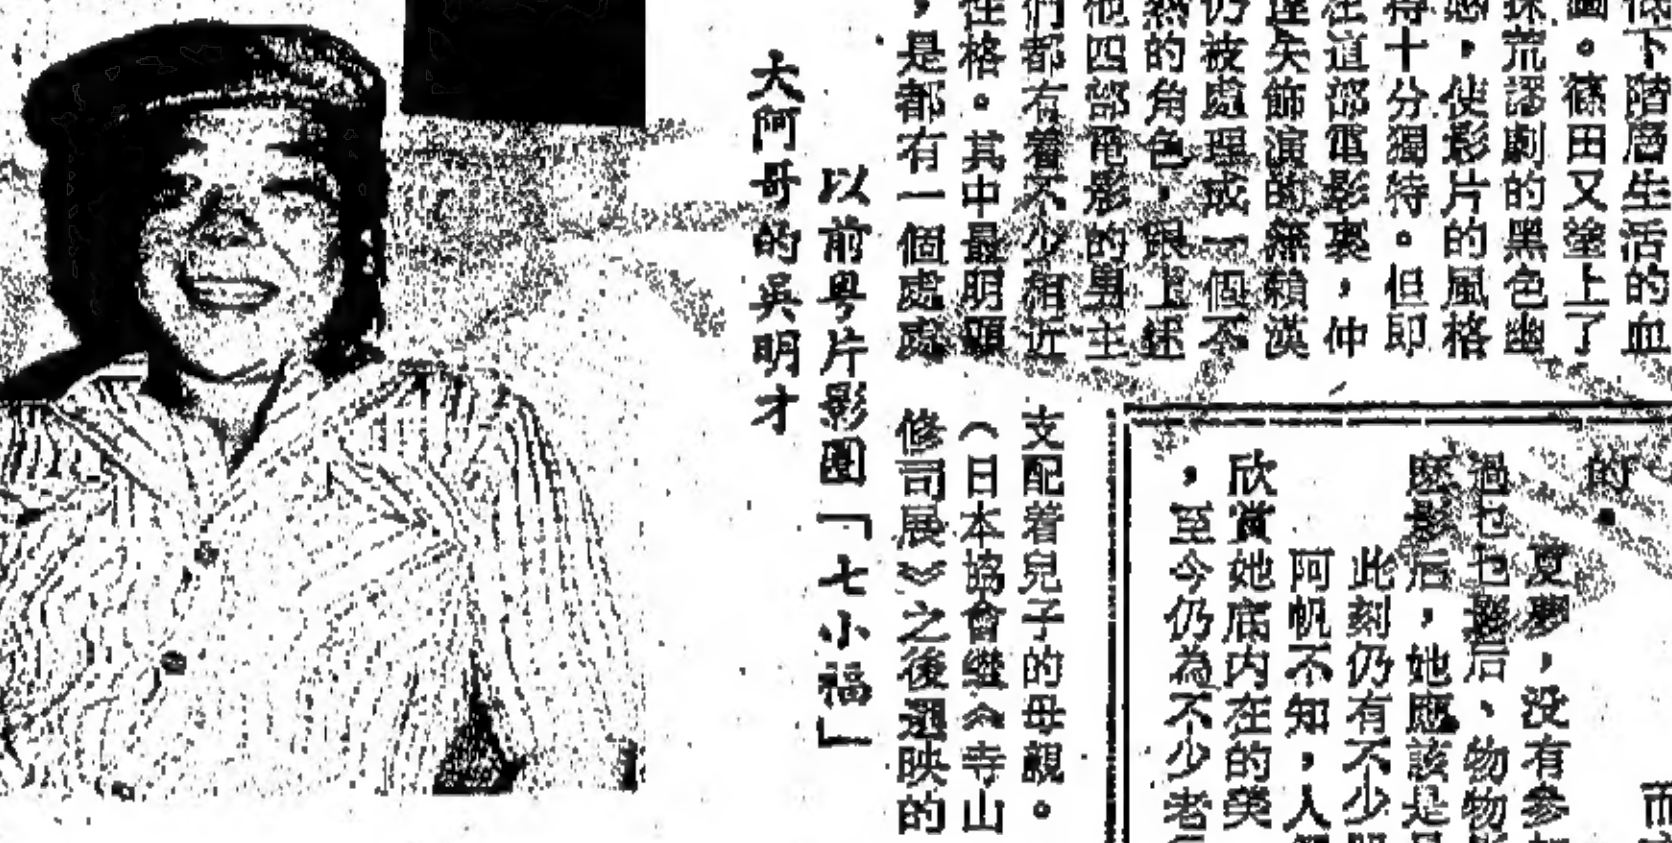 低下階層生活的血
圖。篠田又塗上了
抹荒謬劇的黑色幽
感,使影片的風格
得十分獨特。但即
在這部電影裏,仲
達矢飾演的無賴漢
仍被處理成一個不
熱的角色,跟上述
他四部電影的男主
們都有着不少相近
性格。其中最明顯
,是都有一個處處
支配着兒子的母親。
(日本協會繼《寺山
修司展》之後選映的
以前粵片影圈「七小福」
大阿哥的吳明才
而
的
夏夢,没有參
過乜乜艷后、物物
麽影后,她應該是
此刻仍有不少
阿帆不知,人
欣賞她底内在的美
,至今仍為不少老